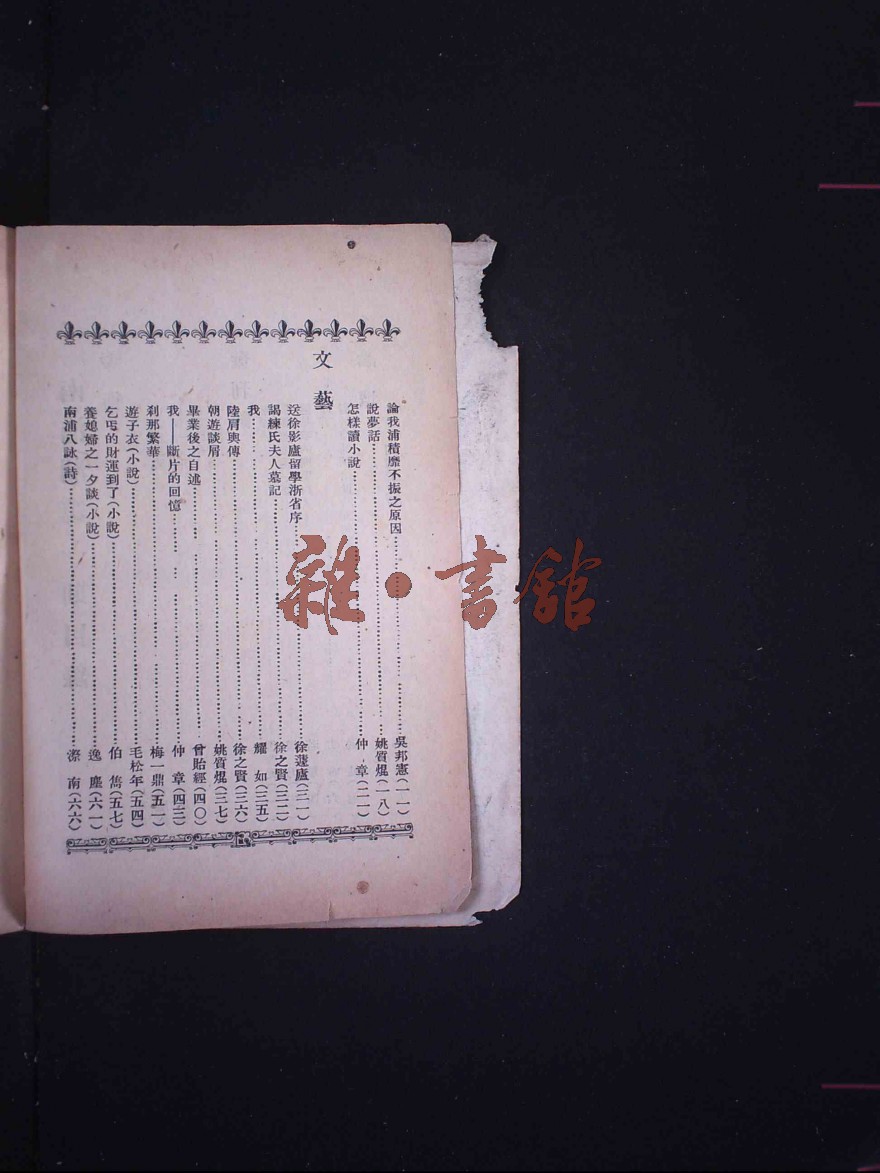 論我浦積靡不振之原因……吳邦憲(一一)
說夢話……姚質焜(一八)
怎樣讀小說……仲章(二一)
文藝
送徐影廬留學浙省序……徐蘧廬(三一)
謁練氏夫人墓記……徐之賢(三二)
我……耀如(三五)
陸肩輿傳……徐之賢(三六)
朝遊談屑……姚質焜(三七)
畢業後之自述……曾貽經(四〇)
我——斷片的回憶……仲章(四三)
刹那繁華……梅一鼎(五一)
遊子衣(小說)……毛松年(五四)
乞丐的財運到了(小說)……伯雋(五七)
養媳婦之一夕談(小說)……逸塵(六一)
南浦八詠(詩)……漈南(六六)
雜·書館